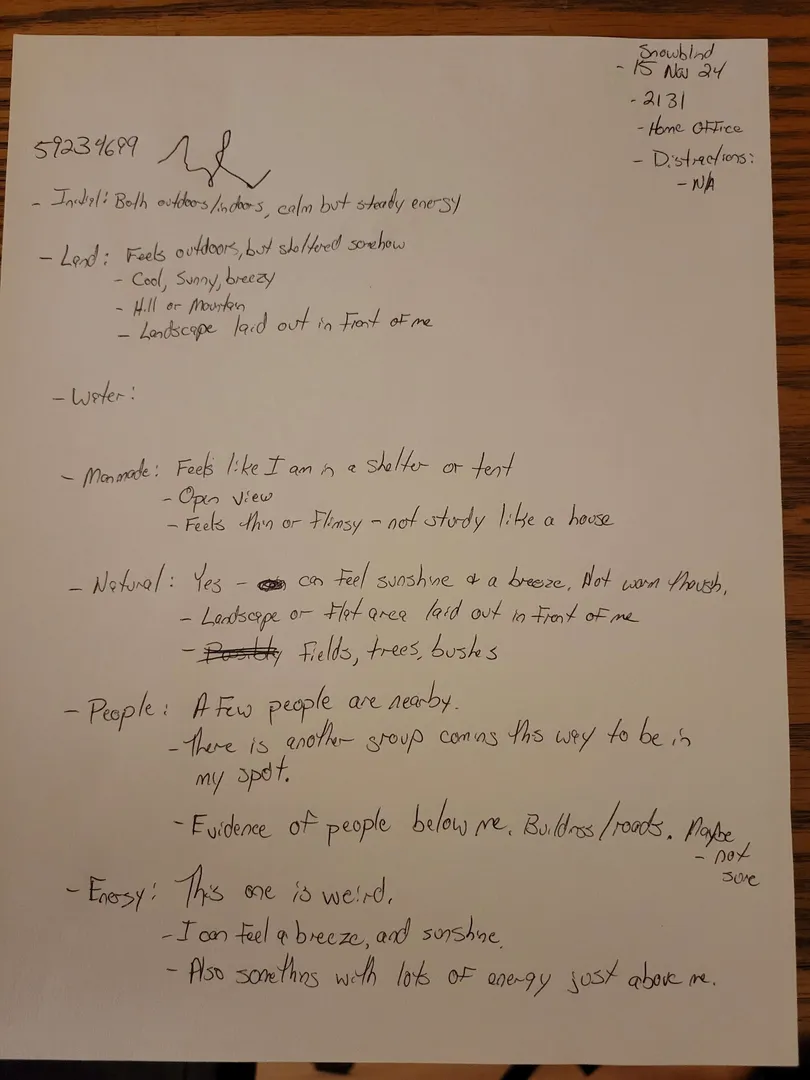 Snowblind
- 15 Nov 24
- 2131
- Home Office
- Distractions:
- N/A
59234699
- Initial: Both outdoors/indoors, calm but steady energy
- Land: Feels outdoors, but sheltered somehow
- Cool, Sunny, breezy
- Hill or Mountain
- Landscape laid out in front of me
- Water:
- Manmade: Feels like I am in a shelter or tent
- Open view
- Feels thin or flimsy - not sturdy like a house
- Natural: Yes - can feel sunshine & a breeze. Not warm though.
- Landscape or flat area laid out in front of me
- Possibly fields, trees, bushes
- People: A few people are nearby.
- There is another group coming this way to be in
my spot.
- Evidence of people below me. Buildings/roads. Maybe
- not
sure
- Energy: This one is weird.
- I can feel a breeze, and sunshine.
- Also something with lots of energy just above me.